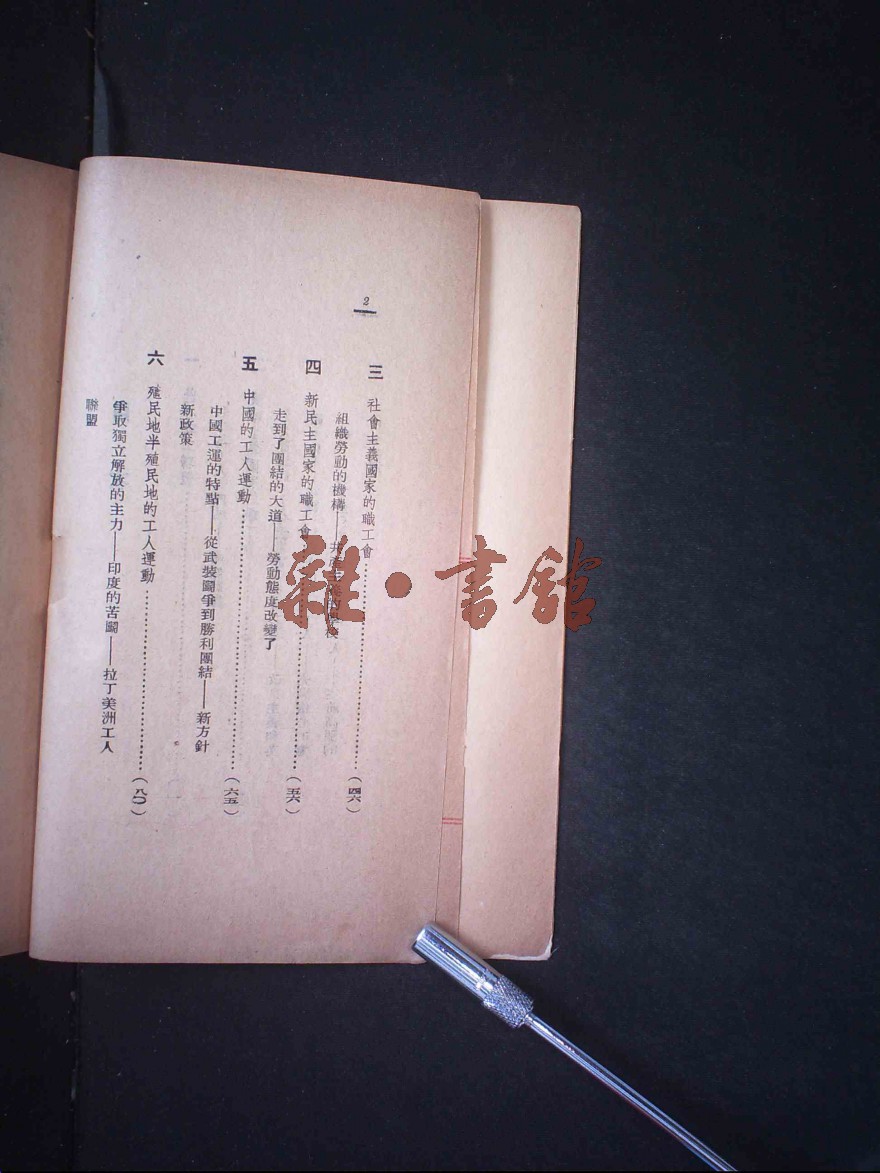 2
三 社會主義國家的職工會……(四六)
組織勞動的機構——共產主義的學校
四 新民主國家的職工會……(五六)
走到了團結的大道——勞動態度改變了
五 中國的工人運動……(六五)
中國工運的特點——從武裝鬪爭到勝利團結——新方針
新政策
六 殖民地半殖民地的工人運動……(八〇)
爭取獨立解放的主力——印度的苦鬪——拉丁美洲工人
聯盟
雜·書館